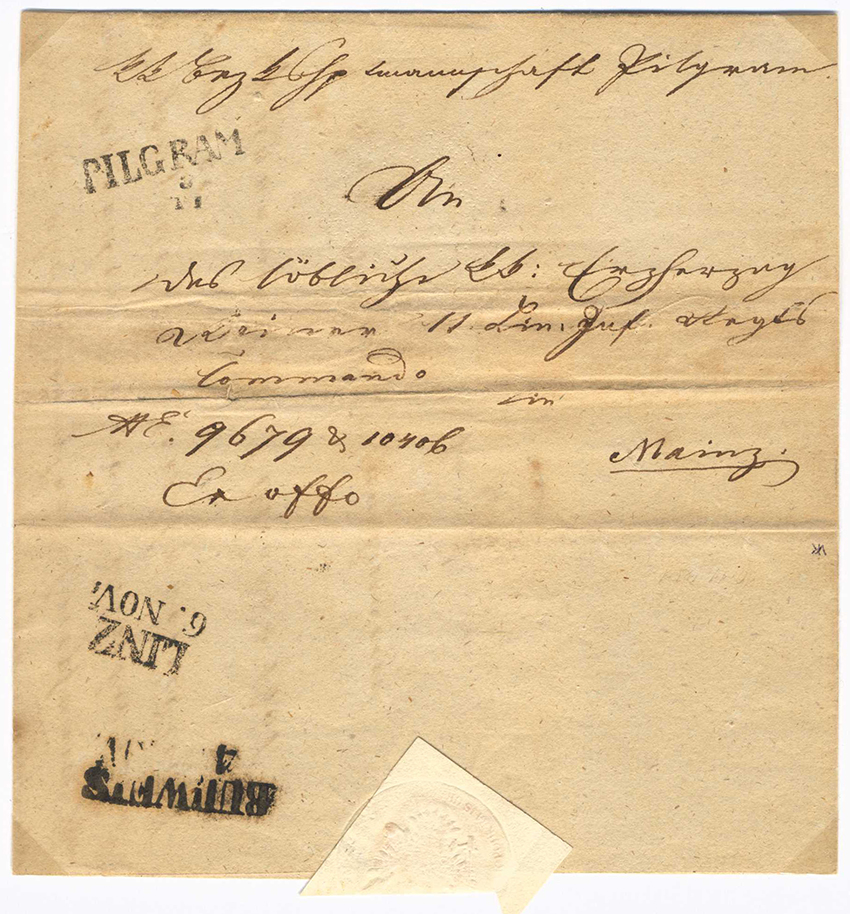 kk Bezkshptmannschaft Pilgram
PILGRAM
3
11
An
das löbliche kk: Erzherzog
Rainer 11. Lin. Inf. Regts
Commando
in
AE. 9679 & 10406
Mainz.
Ex offo
LINZ
6. NOV.
BUDWEIS
4